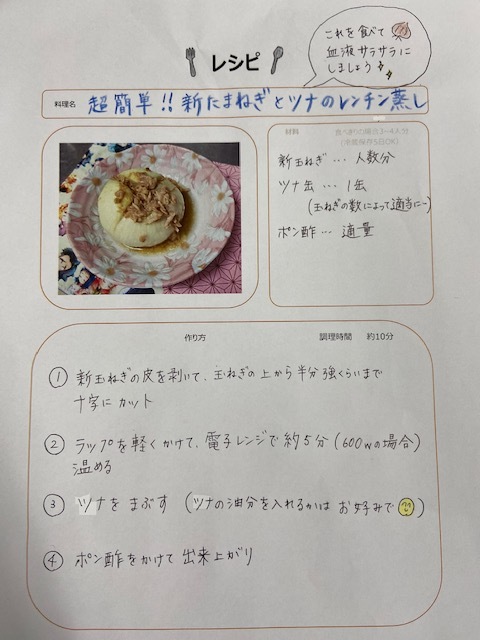 これを食べて
血液サラサラに
しましょう
レシピ
料理名 超簡単!! 新たまねぎとツナのレンチン蒸し
材料 食べきりの場合3~4人分
(冷蔵保存5日OK)
新玉ねぎ… 人数分
ツナ缶 … 1缶
(玉ねぎの数によって適当にー)
ポン酢… 適量
作り方 調理時間 約10分
① 新玉ねぎの皮を剥いて、玉ねぎの上から半分強くらいまで
十字にカット
② ラップを軽くかけて、電子レンジで約5分(600wの場合)
温める
③ ツナをまぶす (ツナの油分を入れるかはお好みで)
④ ポン酢をかけて出来上がり